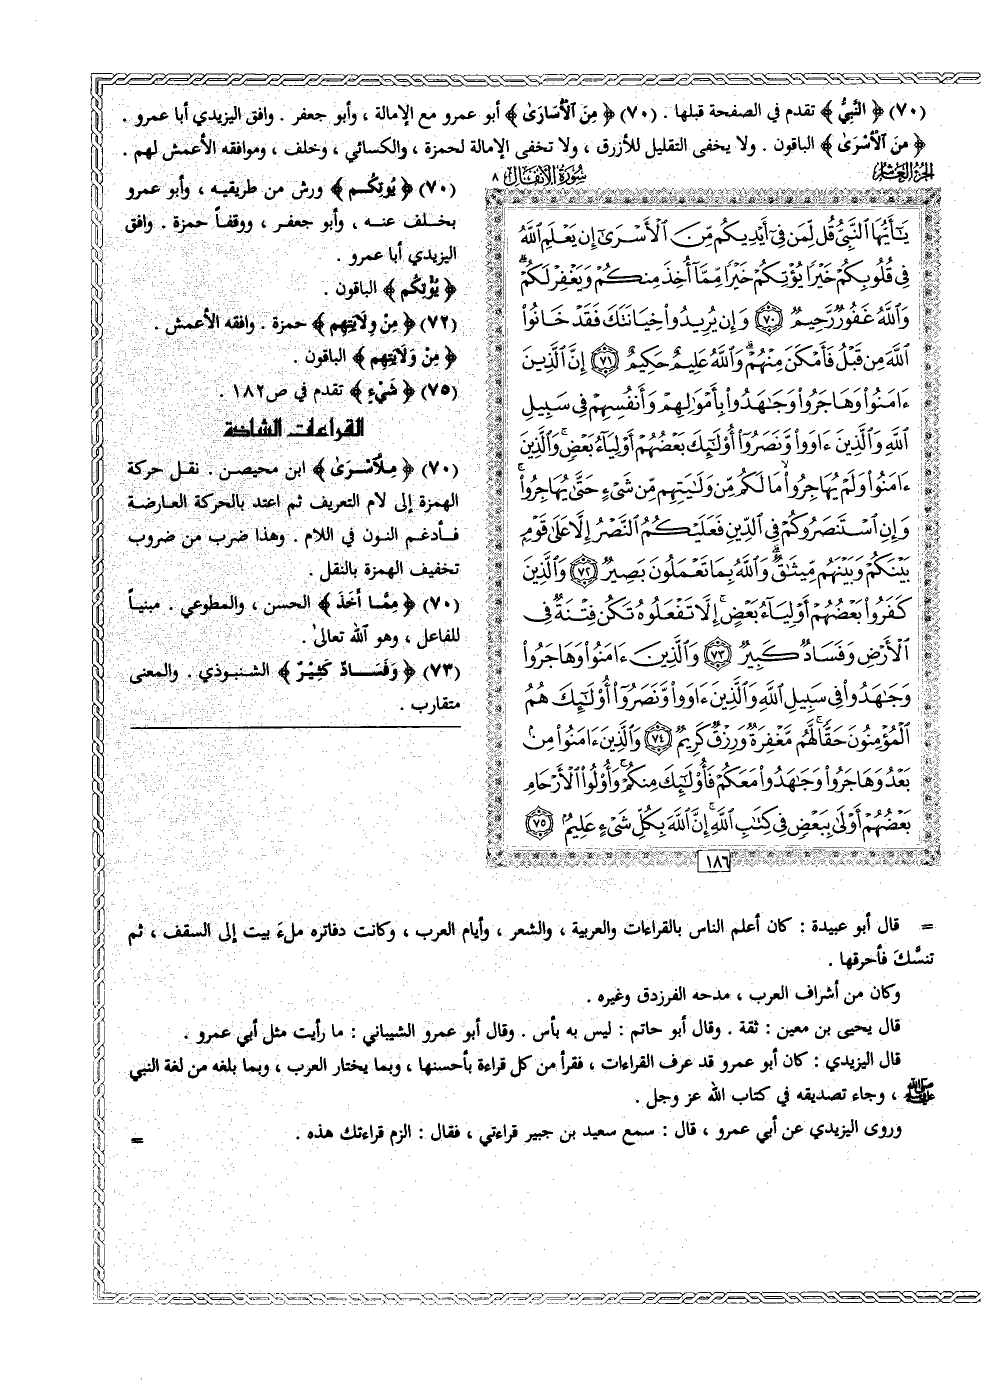 (٧٠) ﴿ النَّبِيُّ ﴾ تقدم في الصفحة قبلها . (٧٠) ﴿ مِنَ الْأُسَارَىٰ ﴾ أبو عمرو مع الإمالة ، وأبو جعفر . وافق اليزيدي أبا عمرو .
﴿ مِنَ الْأَسْرَىٰ ﴾ الباقون . ولا يخفى التقليل للأزرق ، ولا تخفى الإمالة لحمزة ، والكسائي ، وخلف ، وموافقه الأعمش لهم .
الجزء العاشر
سورة الأنفال ٨
يَٰٓأَيُّهَا ٱلنَّبِيُّ قُل لِّمَن فِيٓ أَيْدِيكُم مِّنَ ٱلْأَسْرَىٰٓ إِن يَعْلَمِ ٱللَّهُ
فِي قُلُوبِكُمْ خَيْرًا يُؤْتِكُمْ خَيْرًا مِّمَّآ أُخِذَ مِنكُمْ وَيَغْفِرْ لَكُمْ ۗ
وَٱللَّهُ غَفُورٌ رَّحِيمٌ ٧٠ وَإِن يُرِيدُوا۟ خِيَانَتَكَ فَقَدْ خَانُوا۟
ٱللَّهَ مِن قَبْلُ فَأَمْكَنَ مِنْهُمْ ۗ وَٱللَّهُ عَلِيمٌ حَكِيمٌ ٧١ إِنَّ ٱلَّذِينَ
ءَامَنُوا۟ وَهَاجَرُوا۟ وَجَٰهَدُوا۟ بِأَمْوَٰلِهِمْ وَأَنفُسِهِمْ فِي سَبِيلِ
ٱللَّهِ وَٱلَّذِينَ ءَاوَوا۟ وَّنَصَرُوٓا۟ أُو۟لَٰٓئِكَ بَعْضُهُمْ أَوْلِيَآءُ بَعْضٍ ۚ وَٱلَّذِينَ
ءَامَنُوا۟ وَلَمْ يُهَاجِرُوا۟ مَا لَكُم مِّن وَلَٰيَتِهِم مِّن شَيْءٍ حَتَّىٰ يُهَاجِرُوا۟ ۚ
وَإِنِ ٱسْتَنصَرُوكُمْ فِي ٱلدِّينِ فَعَلَيْكُمُ ٱلنَّصْرُ إِلَّا عَلَىٰ قَوْمٍۭ
بَيْنَكُمْ وَبَيْنَهُم مِّيثَٰقٌ ۗ وَٱللَّهُ بِمَا تَعْمَلُونَ بَصِيرٌ ٧٢ وَٱلَّذِينَ
كَفَرُوا۟ بَعْضُهُمْ أَوْلِيَآءُ بَعْضٍ ۚ إِلَّا تَفْعَلُوهُ تَكُن فِتْنَةٌ فِي
ٱلْأَرْضِ وَفَسَادٌ كَبِيرٌ ٧٣ وَٱلَّذِينَ ءَامَنُوا۟ وَهَاجَرُوا۟
وَجَٰهَدُوا۟ فِي سَبِيلِ ٱللَّهِ وَٱلَّذِينَ ءَاوَوا۟ وَّنَصَرُوٓا۟ أُو۟لَٰٓئِكَ هُمُ
ٱلْمُؤْمِنُونَ حَقًّا ۚ لَّهُم مَّغْفِرَةٌ وَرِزْقٌ كَرِيمٌ ٧٤ وَٱلَّذِينَ ءَامَنُوا۟ مِنۢ
بَعْدُ وَهَاجَرُوا۟ وَجَٰهَدُوا۟ مَعَكُمْ فَأُو۟لَٰٓئِكَ مِنكُمْ ۚ وَأُو۟لُوا۟ ٱلْأَرْحَامِ
بَعْضُهُمْ أَوْلَىٰ بِبَعْضٍ فِي كِتَٰبِ ٱللَّهِ ۗ إِنَّ ٱللَّهَ بِكُلِّ شَيْءٍ عَلِيمٌۢ ٧٥
١٨٦
(٧٠) ﴿ يُوتِكُم ﴾ ورش من طريقيه ، وأبو عمرو
بخلف عنه ، وأبو جعفر ، ووقفاً حمزة . وافق
اليزيدي أبا عمرو .
﴿ يُؤْتِكُم ﴾ الباقون .
(٧٢) ﴿ مِنْ وِلَايَتِهِم ﴾ حمزة . وافقه الأعمش .
﴿ مِنْ وَلَايَتِهِم ﴾ الباقون .
(٧٥) ﴿ شَيْءٍ ﴾ تقدم في ص١٨٢ .
القراءات الشاذة
(٧٠) ﴿ مِلَّاسْرَىٰ ﴾ ابن محيصن . نقل حركة
الهمزة إلى لام التعريف ثم اعتد بالحركة العارضة
فأدغم النون في اللام . وهذا ضرب من ضروب
تخفيف الهمزة بالنقل .
(٧٠) ﴿ مِمَّا أَخَذَ ﴾ الحسن ، والمطوعي . مبنياً
للفاعل ، وهو الله تعالىٰ .
(٧٣) ﴿ وَفَسَادٌ كَثِيْرٌ ﴾ الشنبوذي . والمعنى
متقارب .
= قال أبو عبيدة : كان أعلم الناس بالقراءات والعربية ، والشعر ، وأيام العرب ، وكانت دفاتره ملءَ بيت إلى السقف ، ثم
تنسَّكَ فأحرقها .
وكان من أشراف العرب ، مدحه الفرزدق وغيره .
قال يحيى بن معين : ثقة . وقال أبو حاتم : ليس به بأس . وقال أبو عمرو الشيباني : ما رأيت مثل أبي عمرو .
قال اليزيدي : كان أبو عمرو قد عرف القراءات ، فقرأ من كل قراءة بأحسنها ، وبما يختار العرب ، وبما بلغه من لغة النبي
ﷺ ، وجاء تصديقه في كتاب الله عز وجل .
وروى اليزيدي عن أبي عمرو ، قال : سمع سعيد بن جبير قراءتي ، فقال : الزم قراءتك هذه . =